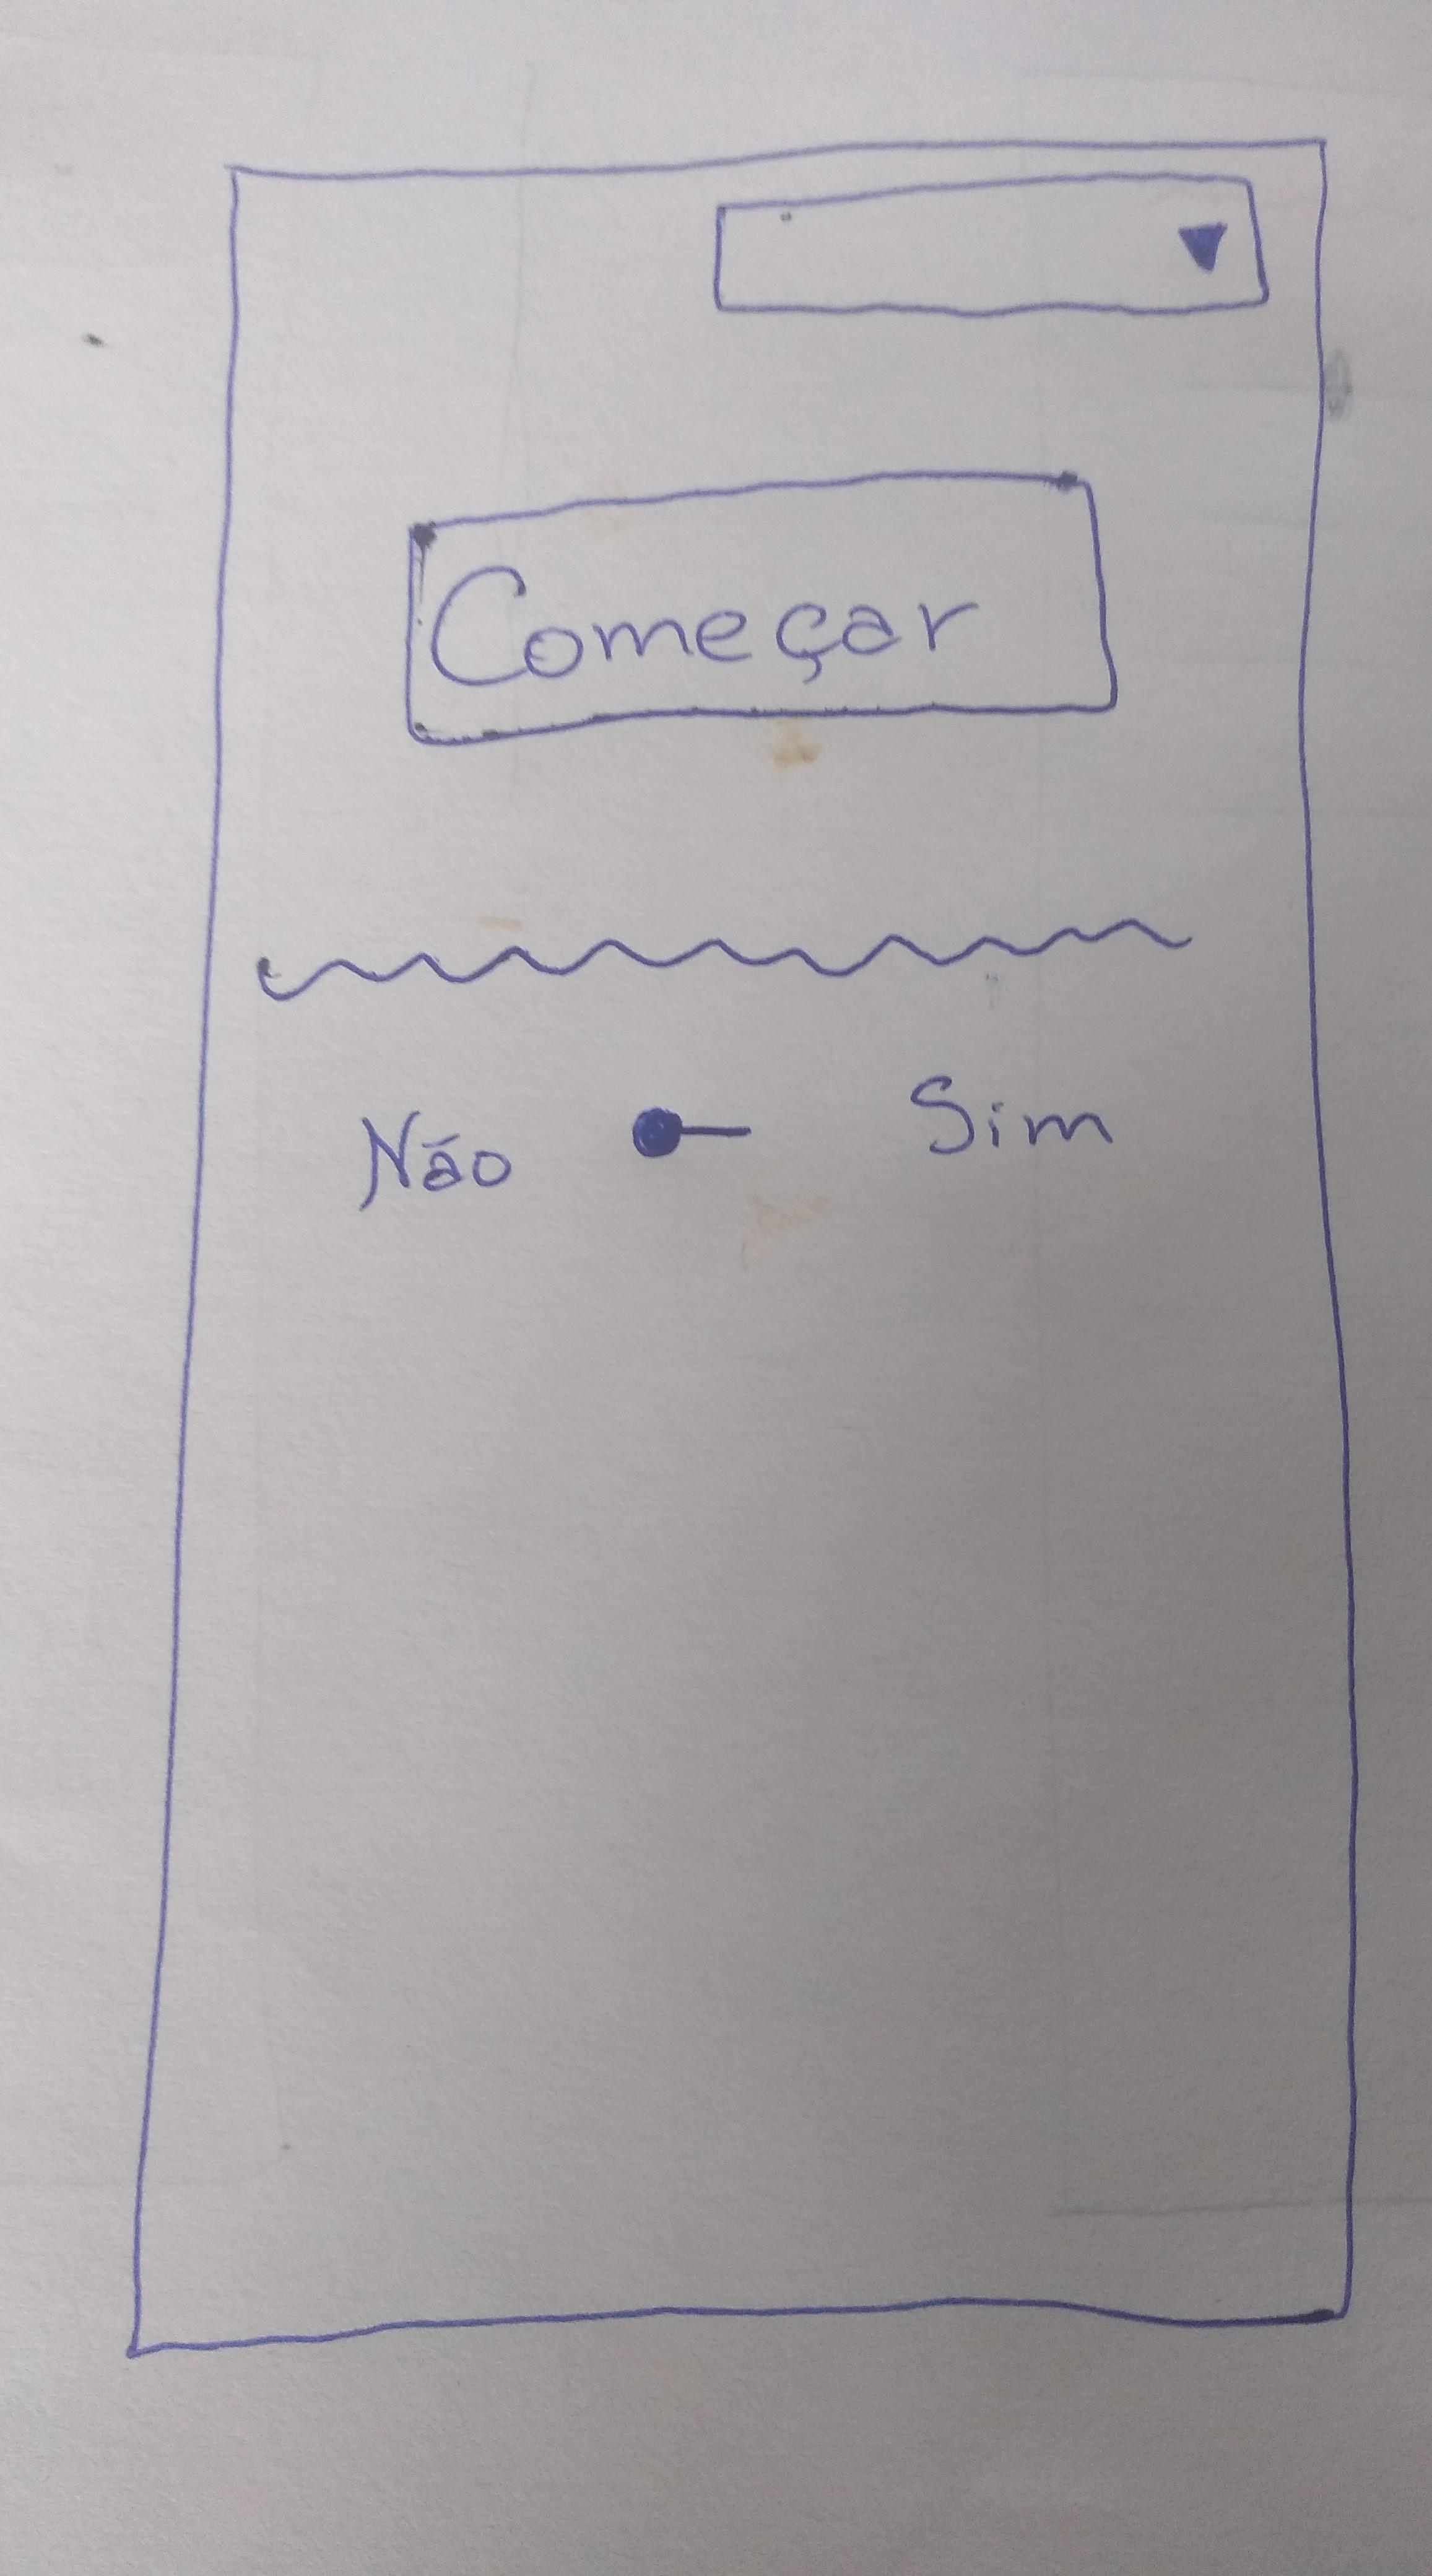 Começar
Não Sim